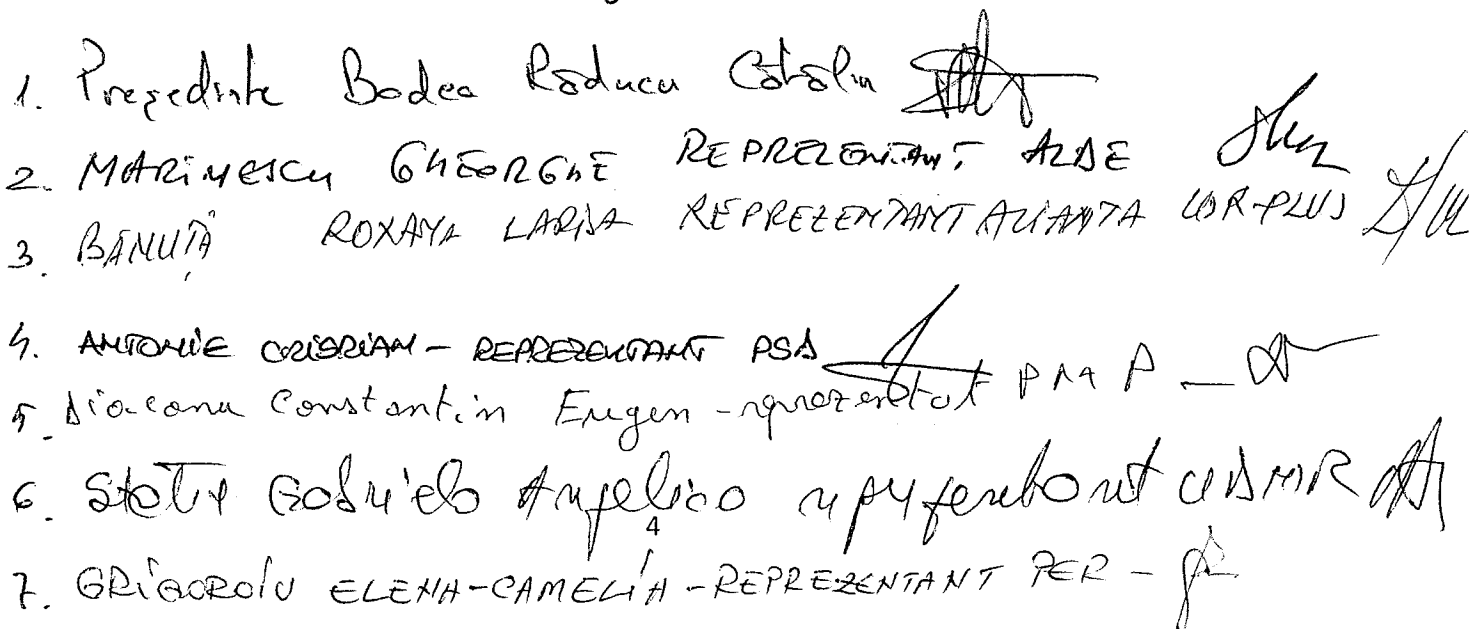 1. Președinte Badea Răducu Cătălin
2. MARINESCU GHEORGHE REPREZENTANT ALDE
3. BĂNUȚĂ ROXANA LARISA REPREZENTANT ALIANȚA USR-PLUS
4. ANTONIE CRISTIAN - REPREZENTANT PSD
5. Diaconu Constantin Eugen - reprezentat PMP -
6. Gabriela Angelica reprezentant UDMR
4
7. GRIGOROIU ELENA-CAMELIA - REPREZENTANT PER -